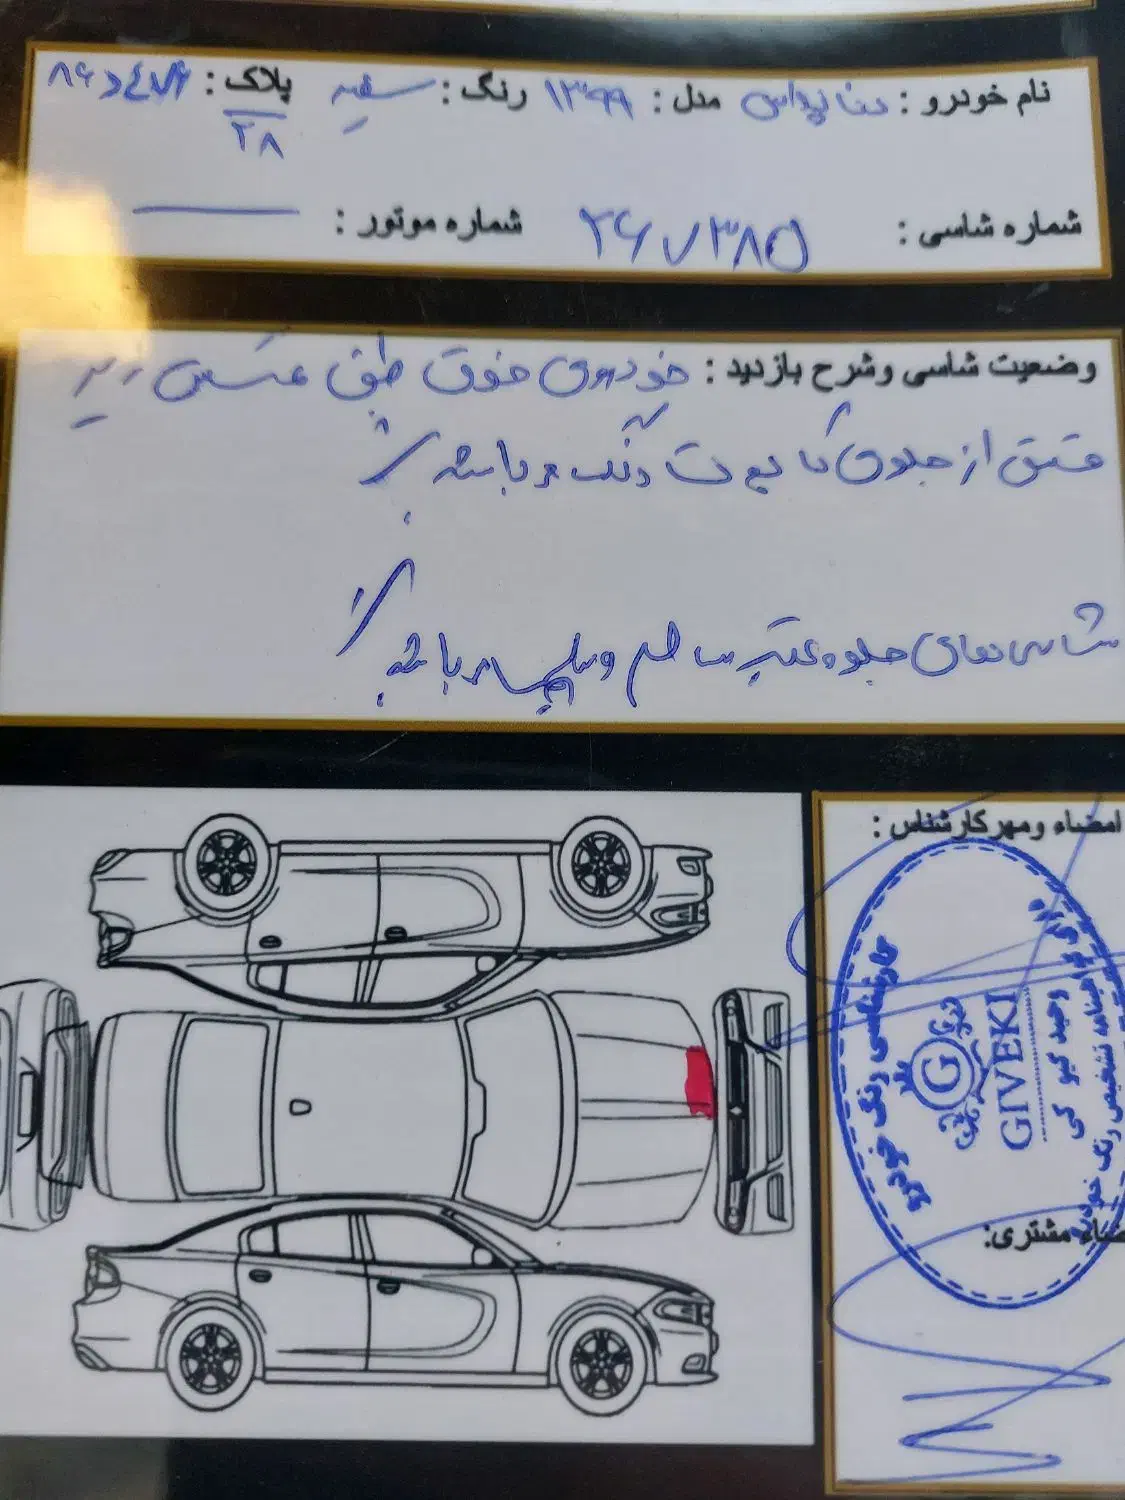 نام خودرو : دنا پلاس مدل : ۱۳۹۹ رنگ : سفید پلاک :
۲۸
شماره شاسی : ۲۶۷۳۸۵ شماره موتور :
وضعیت شاسی وشرح بازدید : خودروی فوق طبق عکس زیر
از جلوی کاپوت رنگ میباشد
شاسی های جلو و عقب سالم و پلمپ میباشد
امضاء ومهرکارشناس :
کارشناسی رنگ خودرو
G
GIVEKI
وحید گیو کی
گواهینامه تشخیص رنگ خودرو
مشتری: